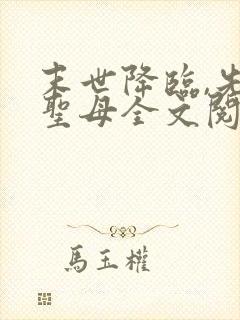 末世降臨,先
聖母全文閱
馬玉權